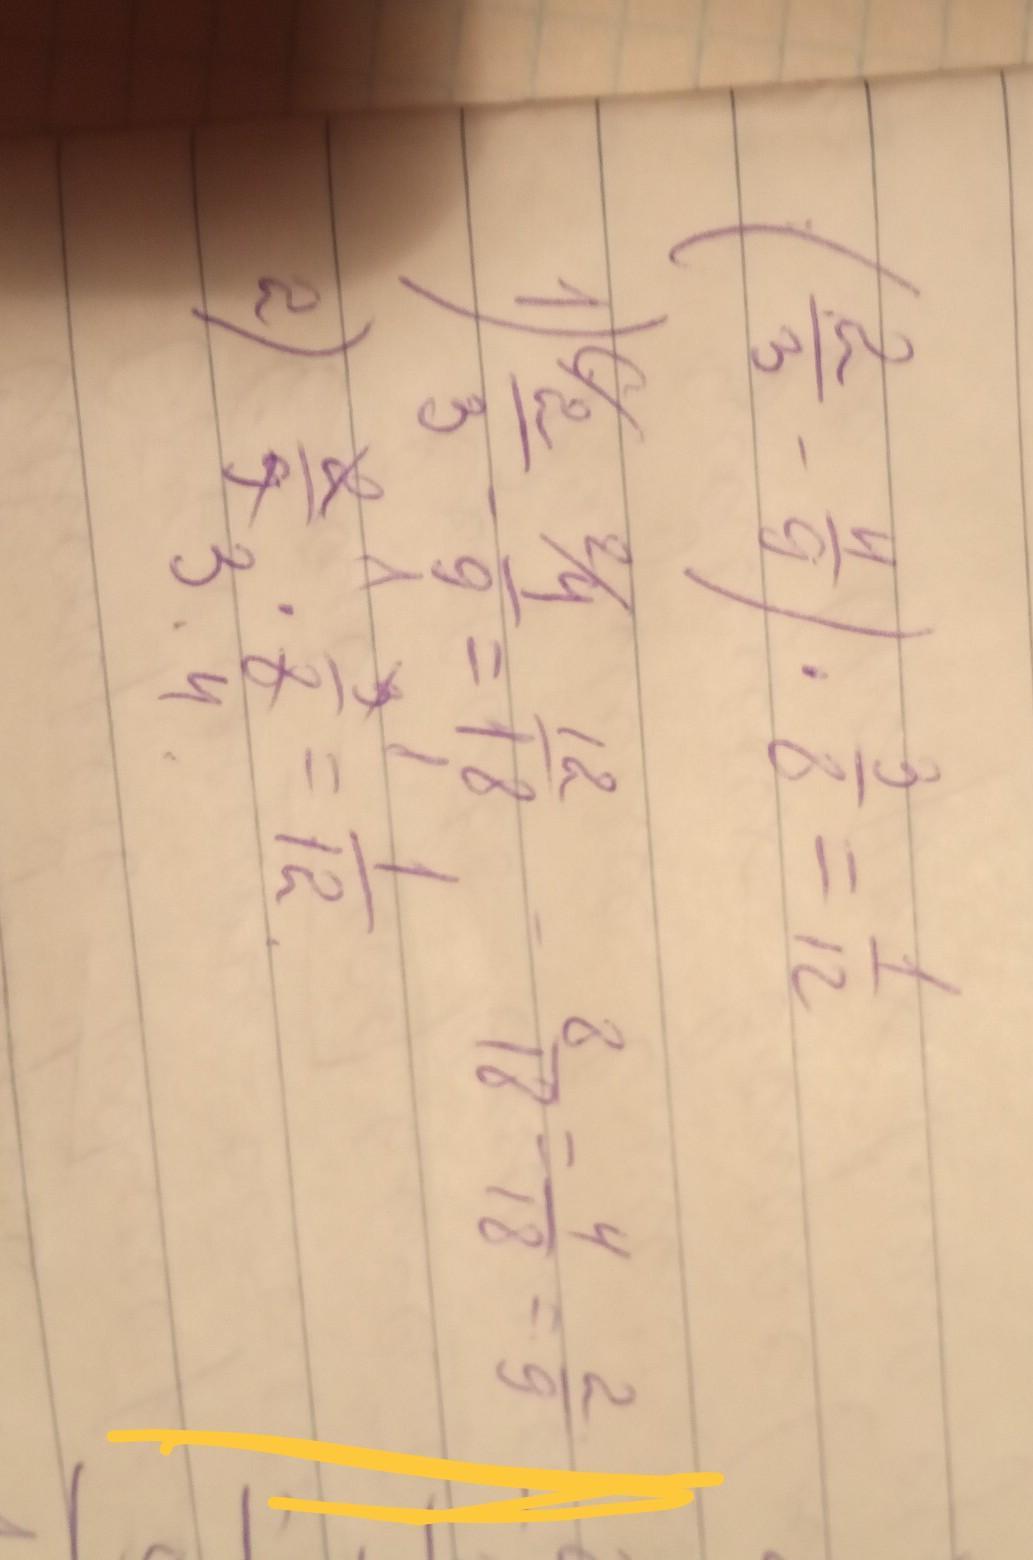 (2/3 - 4/9) · 3/8 = 1/12
1) 6/ 2/3 - 2/ 4/9 = 12/18 - 8/18 = 4/18 = 2/9
2) 2/9 · 3/8 = 1/12
1 1
3 · 4